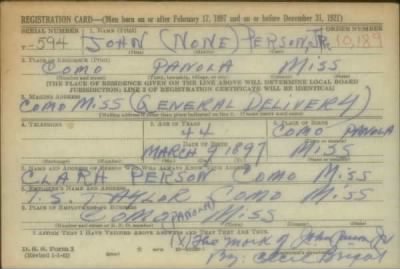 REGISTRATION CARD—(Men born on or after February 17, 1897 and on or before December 31, 1921)
SERIAL NUMBER 1. NAME (Print) ORDER NUMBER
594 JOHN (NONE) PERSON, JR. 10,189
(First) (Middle) (Last)
2. PLACE OF RESIDENCE (Print)
COMO PANOLA MISS
(Number and street) (Town, township, village, or city) (County) (State)
(THE PLACE OF RESIDENCE GIVEN ON THE LINE ABOVE WILL DETERMINE LOCAL BOARD
JURISDICTION; LINE 2 OF REGISTRATION CERTIFICATE WILL BE IDENTICAL)
3. MAILING ADDRESS
COMO MISS (GENERAL DELIVERY)
4. TELEPHONE 5. AGE IN YEARS 6. PLACE OF BIRTH
44 COMO PANOLA
DATE OF BIRTH
MARCH 9 1897 MISS
7. NAME AND ADDRESS OF PERSON WHO WILL ALWAYS KNOW YOUR ADDRESS
CLARA PERSON COMO MISS
8. EMPLOYER'S NAME AND ADDRESS
TAYLOR COMO MISS
9. PLACE OF EMPLOYMENT OR BUSINESS
COMO (PANOLA) MISS
I AFFIRM THAT I HAVE VERIFIED ABOVE ANSWERS AND THAT THEY ARE TRUE.
D. S. S. Form 1 (X) The mark of John Person Jr
By: Cecil